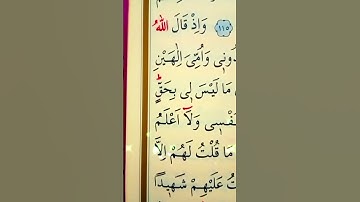 ﴿١١٥﴾ وَاِذْ قَالَ اللّٰهُ
وَاُمِّىَ اِلٰهَيْنِ
مَا لَيْسَ ل۪ى بِحَقٍّۜ
نَفْس۪ى وَلَٓا اَعْلَمُ
مَا قُلْتُ لَهُمْ اِلَّا
عَلَيْهِمْ شَه۪يدًا